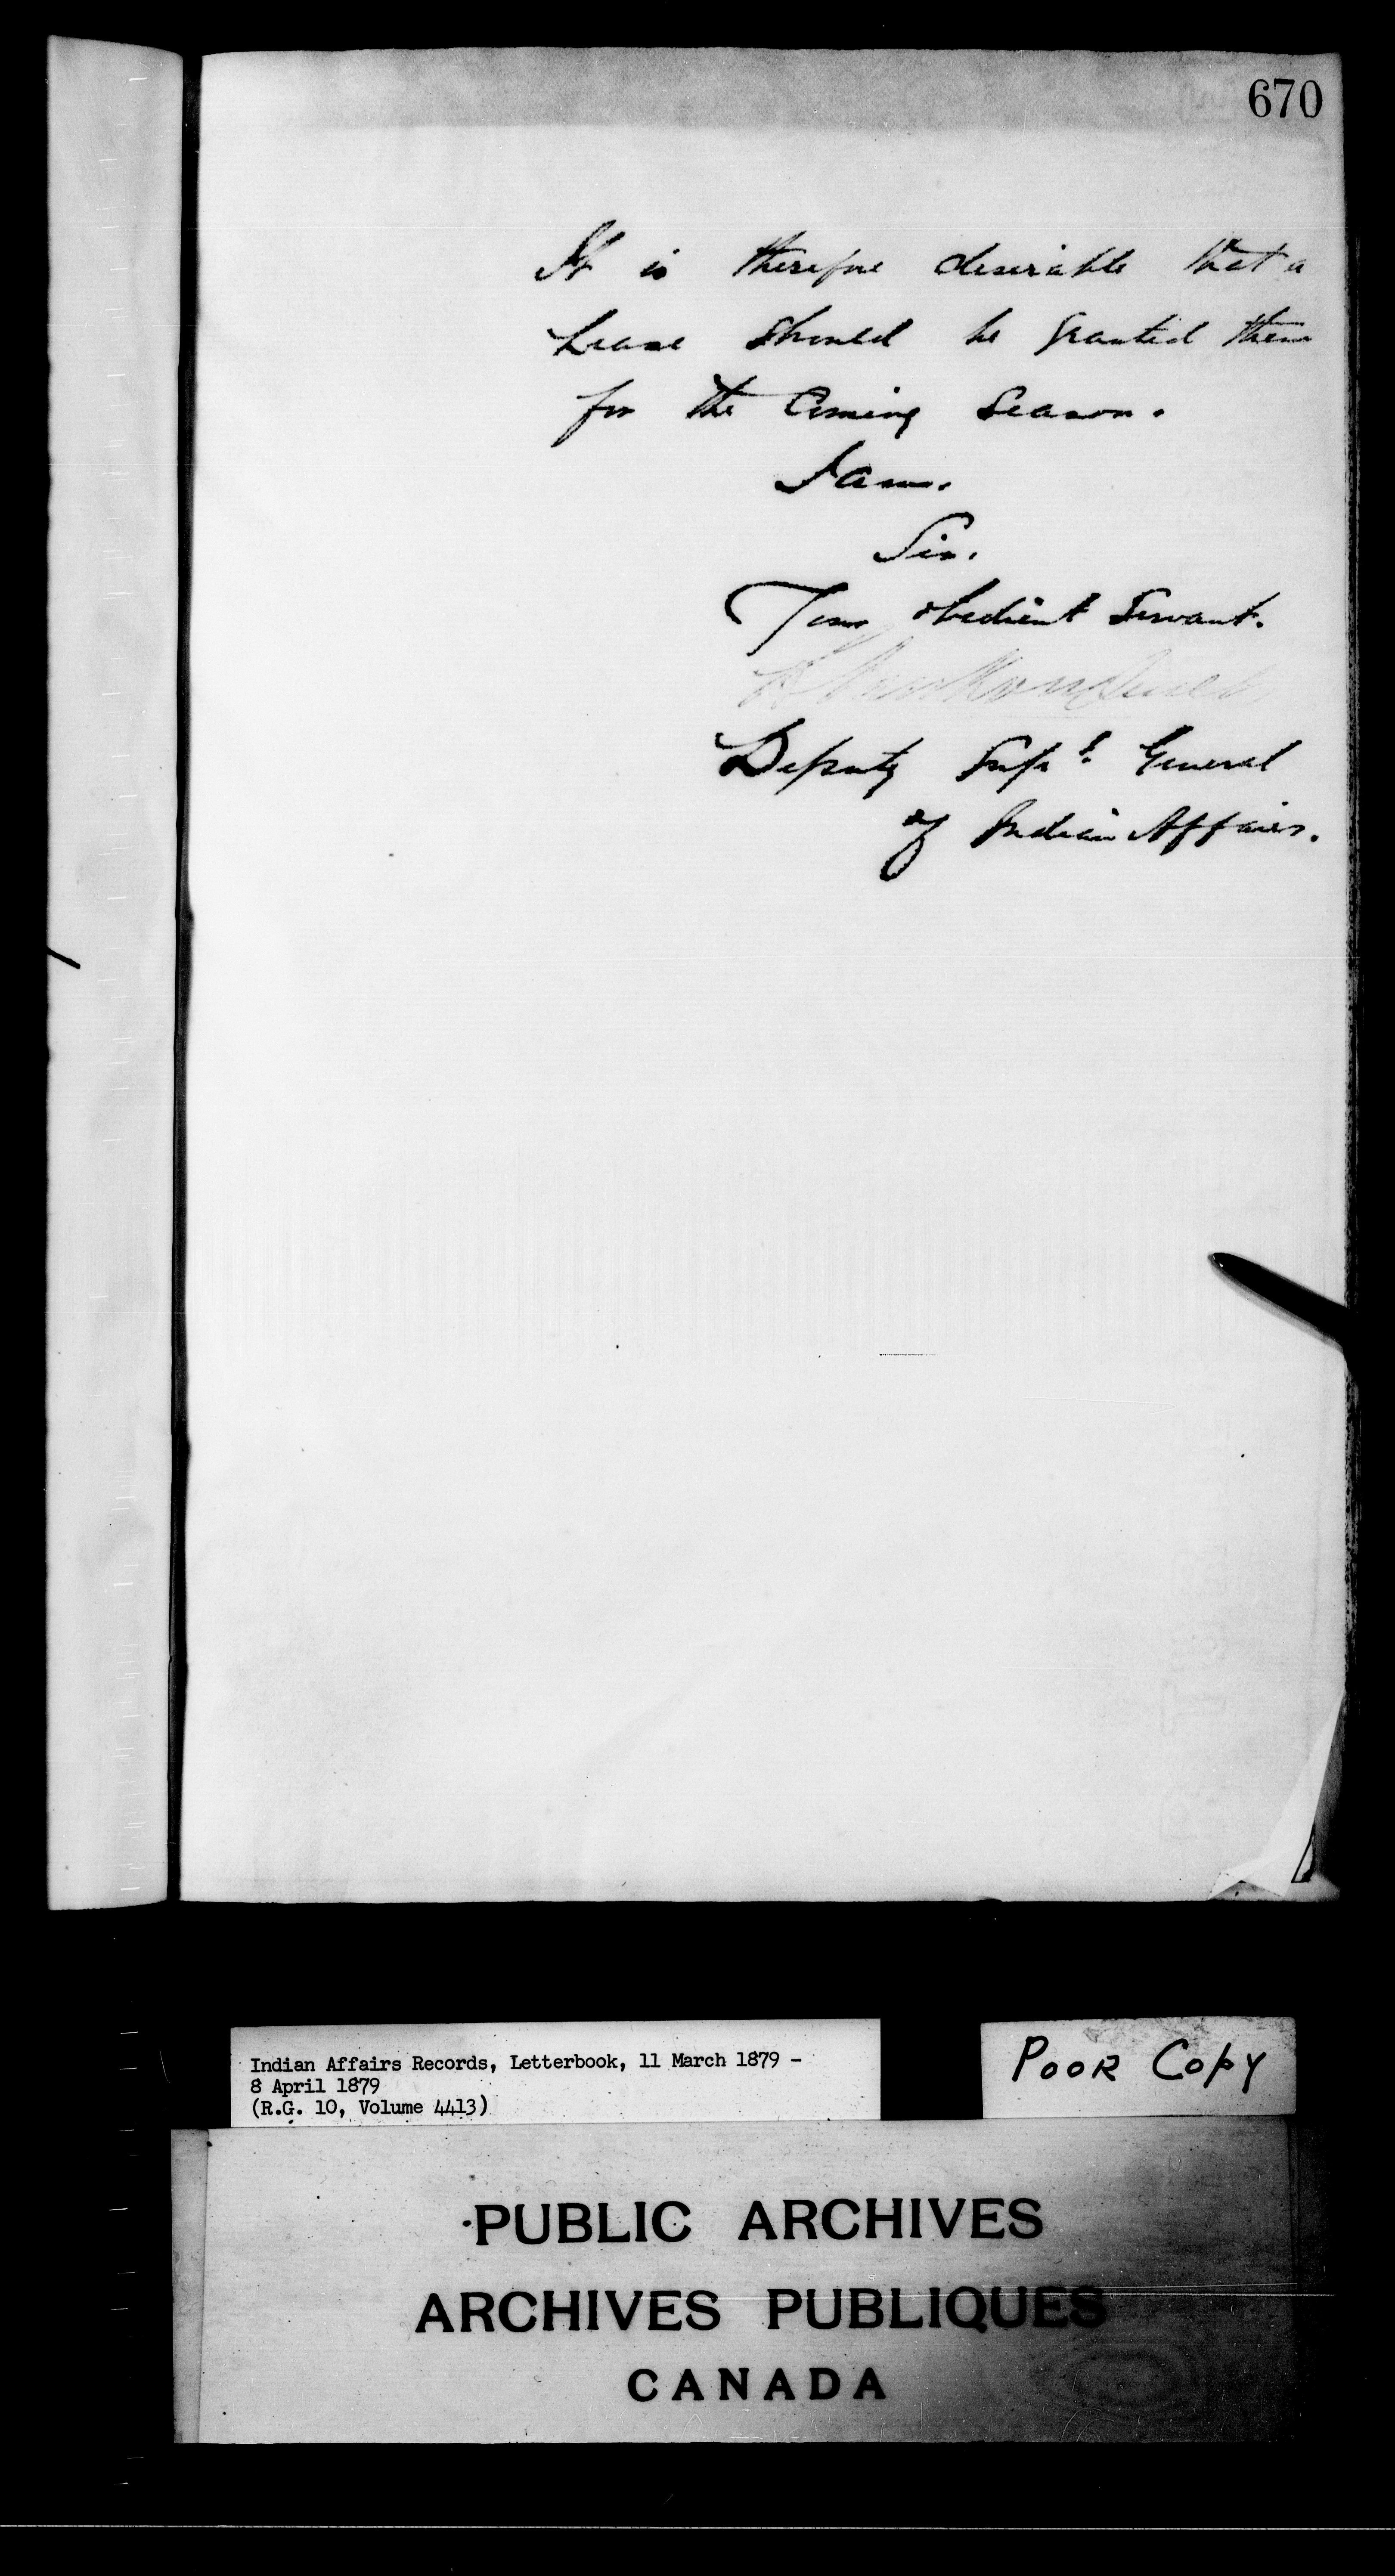 670
It is therefore desirable that a
Lease should be granted them
for the Coming Season.
I am.
Sir.
Your obedient Servant.
Deputy Supt. General
of Indian Affairs.
Indian Affairs Records, Letterbook, 11 March 1879 -
8 April 1879
(R.G. 10, Volume 4413)
POOR COPY
PUBLIC ARCHIVES
ARCHIVES PUBLIQUES
CANADA